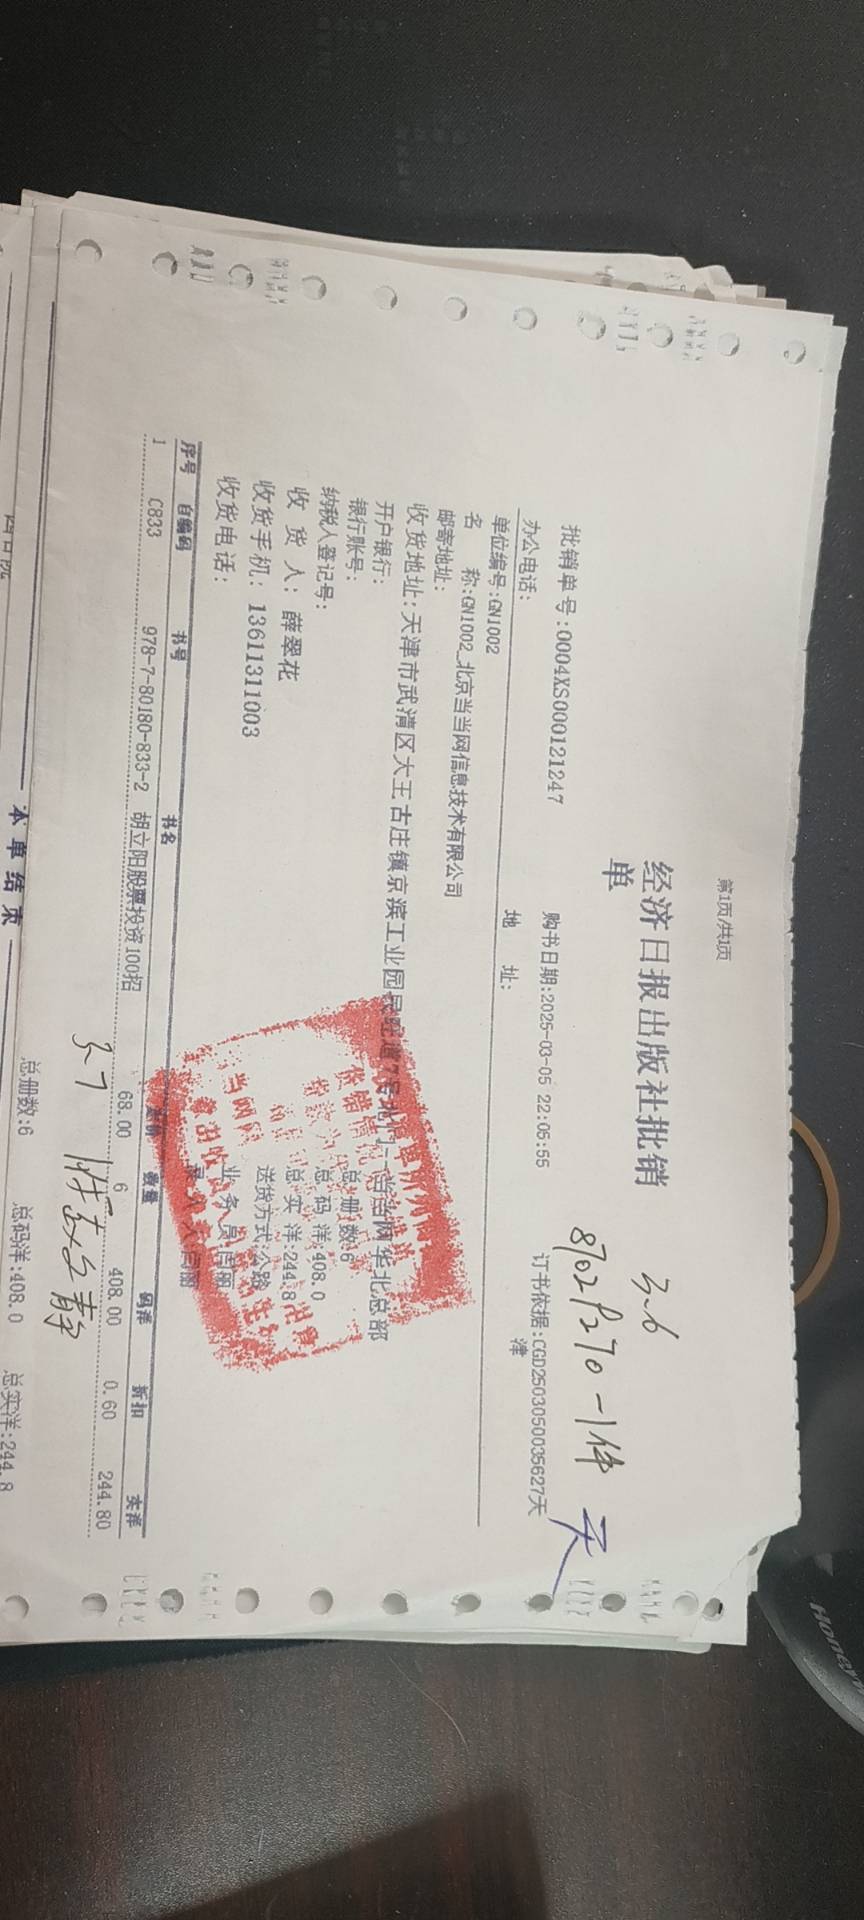 第1页/共1页
经济日报出版社批销
单
3-6
8702P270-1件
天
批销单号:0004XS000121247
购书日期:2025-03-05 22:05:55
订书依据:CGD2503050035627天
津
办公电话:
地 址:
单位编号:GN1002
名 称:GN1002_北京当当网信息技术有限公司
邮寄地址:
收货地址:天津市武清区大王古庄镇京滨工业园民旺道7号北门--当当网华北总部
开户银行:
银行账号:
总册数:6
纳税人登记号:
总 码 洋:408.0
收 货 人:薛翠花
总 实 洋:244.8
收货手机:13611311003
送货方式:公路
收货电话:
业 务 员:闫丽
录 入 人:闫丽
序号 自编码 书号 书名 定价 数量 码洋 折扣 实洋
1 C833 978-7-80180-833-2 胡立阳股票投资100招 68.00 6 408.00 0.60 244.80
3-7
本单结束
总册数:6 总码洋:408.0 总实洋:244.8